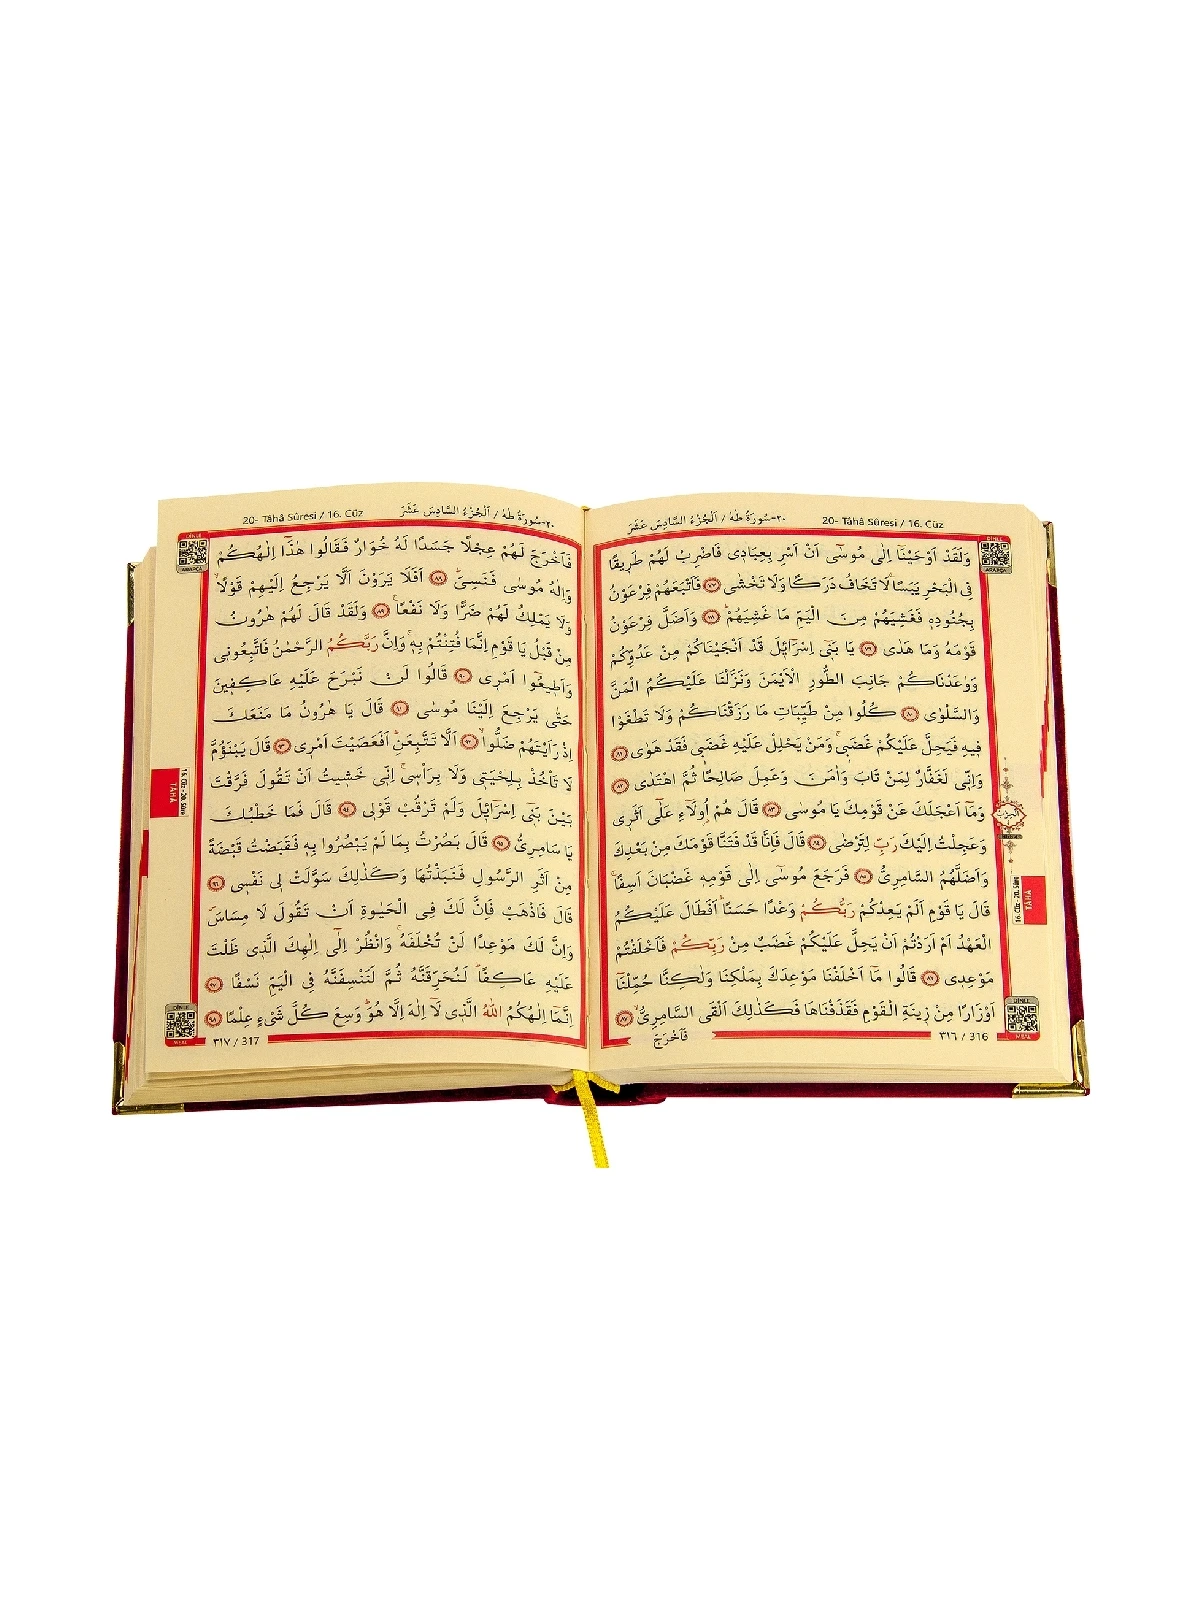 ٢٠-سُورَةُ طٰهٰ / اَلْجُزْءُ السَّادِسَ عَشَرَ
20- Tâhâ Sûresi / 16. Cüz
DİNLE
ARAPÇA
وَلَقَدْ اَوْحَيْنَٓا اِلٰى مُوسٰٓى اَنْ اَسْرِ بِعِبَاد۪ي فَاضْرِبْ لَهُمْ طَر۪يقًا
فِي الْبَحْرِ يَبَسًاۙ لَا تَخَافُ دَرَكًا وَلَا تَخْشٰى ﴿٧٧﴾ فَاَتْبَعَهُمْ فِرْعَوْنُ
بِجُنُودِه۪ فَغَشِيَهُمْ مِنَ الْيَمِّ مَا غَشِيَهُمْۜ ﴿٧٨﴾ وَاَضَلَّ فِرْعَوْنُ
قَوْمَهُ وَمَا هَدٰى ﴿٧٩﴾ يَا بَن۪ٓي اِسْرَٓائ۪لَ قَدْ اَنْجَيْنَاكُمْ مِنْ عَدُوِّكُمْ
وَوٰعَدْنَاكُمْ جَانِبَ الطُّورِ الْاَيْمَنَ وَنَزَّلْنَا عَلَيْكُمُ الْمَنَّ
وَالسَّلْوٰى ﴿٨٠﴾ كُلُوا مِنْ طَيِّبَاتِ مَا رَزَقْنَاكُمْ وَلَا تَطْغَوْا
ف۪يهِ فَيَحِلَّ عَلَيْكُمْ غَضَب۪يۚ وَمَنْ يَحْلِلْ عَلَيْهِ غَضَب۪ي فَقَدْ هَوٰى ﴿٨١﴾
وَاِنّ۪ي لَغَفَّارٌ لِمَنْ تَابَ وَاٰمَنَ وَعَمِلَ صَالِحًا ثُمَّ اهْتَدٰى ﴿٨٢﴾
وَمَٓا اَعْجَلَكَ عَنْ قَوْمِكَ يَا مُوسٰى ﴿٨٣﴾ قَالَ هُمْ اُو۬لَٓاءِ عَلٰٓى اَثَر۪ي
وَعَجِلْتُ اِلَيْكَ رَبِّ لِتَرْضٰى ﴿٨٤﴾ قَالَ فَاِنَّا قَدْ فَتَنَّا قَوْمَكَ مِنْ بَعْدِكَ
وَاَضَلَّهُمُ السَّامِرِيُّ ﴿٨٥﴾ فَرَجَعَ مُوسٰٓى اِلٰى قَوْمِه۪ غَضْبَانَ اَسِفًاۚ
قَالَ يَا قَوْمِ اَلَمْ يَعِدْكُمْ رَبُّكُمْ وَعْدًا حَسَنًاۜ اَفَطَالَ عَلَيْكُمُ
الْعَهْدُ اَمْ اَرَدْتُمْ اَنْ يَحِلَّ عَلَيْكُمْ غَضَبٌ مِنْ رَبِّكُمْ فَاَخْلَفْتُمْ
مَوْعِد۪ي ﴿٨٦﴾ قَالُوا مَٓا اَخْلَفْنَا مَوْعِدَكَ بِمَلْكِنَا وَلٰكِنَّا حُمِّلْنَٓا
اَوْزَارًا مِنْ ز۪ينَةِ الْقَوْمِ فَقَذَفْنَاهَا فَكَذٰلِكَ اَلْقَى السَّامِرِيُّۙ ﴿٨٧﴾
٣١٦ / 316
فَاَخْرَجَ
DİNLE
MEAL
16. Cüz - 20. Sûre
TÂHÂ
٢٠-سُورَةُ طٰهٰ / اَلْجُزْءُ السَّادِسَ عَشَرَ
20- Tâhâ Sûresi / 16. Cüz
DİNLE
ARAPÇA
فَاَخْرَجَ لَهُمْ عِجْلًا جَسَدًا لَهُ خُوَارٌ فَقَالُوا هٰذَٓا اِلٰهُكُمْ
وَاِلٰهُ مُوسٰى فَنَسِيَۜ ﴿٨٨﴾ اَفَلَا يَرَوْنَ اَلَّا يَرْجِعُ اِلَيْهِمْ قَوْلًاۙ
وَلَا يَمْلِكُ لَهُمْ ضَرًّا وَلَا نَفْعًا۟ ﴿٨٩﴾ وَلَقَدْ قَالَ لَهُمْ هٰرُونُ
مِنْ قَبْلُ يَا قَوْمِ اِنَّمَا فُتِنْتُمْ بِه۪ۚ وَاِنَّ رَبَّكُمُ الرَّحْمٰنُ فَاتَّبِعُون۪ي
وَاَط۪يعُٓوا اَمْر۪ي ﴿٩٠﴾ قَالُوا لَنْ نَبْرَحَ عَلَيْهِ عَاكِف۪ينَ
حَتّٰى يَرْجِعَ اِلَيْنَا مُوسٰى ﴿٩١﴾ قَالَ يَا هٰرُونُ مَا مَنَعَكَ
اِذْ رَاَيْتَهُمْ ضَلُّٓواۙ ﴿٩٢﴾ اَلَّا تَتَّبِعَنِۜ اَفَعَصَيْتَ اَمْر۪ي ﴿٩٣﴾ قَالَ يَبْنَؤُ۬مَّ
لَا تَأْخُذْ بِلِحْيَت۪ي وَلَا بِرَأْس۪يۚ اِنّ۪ي خَش۪يتُ اَنْ تَقُولَ فَرَّقْتَ
بَيْنَ بَن۪ٓي اِسْرَٓائ۪لَ وَلَمْ تَرْقُبْ قَوْل۪ي ﴿٩٤﴾ قَالَ فَمَا خَطْبُكَ
يَا سَامِرِيُّ ﴿٩٥﴾ قَالَ بَصُرْتُ بِمَا لَمْ يَبْصُرُوا بِه۪ فَقَبَضْتُ قَبْضَةً
مِنْ اَثَرِ الرَّسُولِ فَنَبَذْتُهَا وَكَذٰلِكَ سَوَّلَتْ ل۪ي نَفْس۪ي ﴿٩٦﴾
قَالَ فَاذْهَبْ فَاِنَّ لَكَ فِي الْحَيٰوةِ اَنْ تَقُولَ لَا مِسَاسَۖ
وَاِنَّ لَكَ مَوْعِدًا لَنْ تُخْلَفَهُۚ وَانْظُرْ اِلٰٓى اِلٰهِكَ الَّذ۪ي ظَلْتَ
عَلَيْهِ عَاكِفًاۜ لَنُحَرِّقَنَّهُ ثُمَّ لَنَنْسِفَنَّهُ فِي الْيَمِّ نَسْفًا ﴿٩٧﴾
اِنَّمَٓا اِلٰهُكُمُ اللّٰهُ الَّذ۪ي لَٓا اِلٰهَ اِلَّا هُوَۜ وَسِعَ كُلَّ شَيْءٍ عِلْمًا ﴿٩٨﴾
٣١٧ / 317
DİNLE
MEAL
16. Cüz - 20. Sûre
TÂHÂ